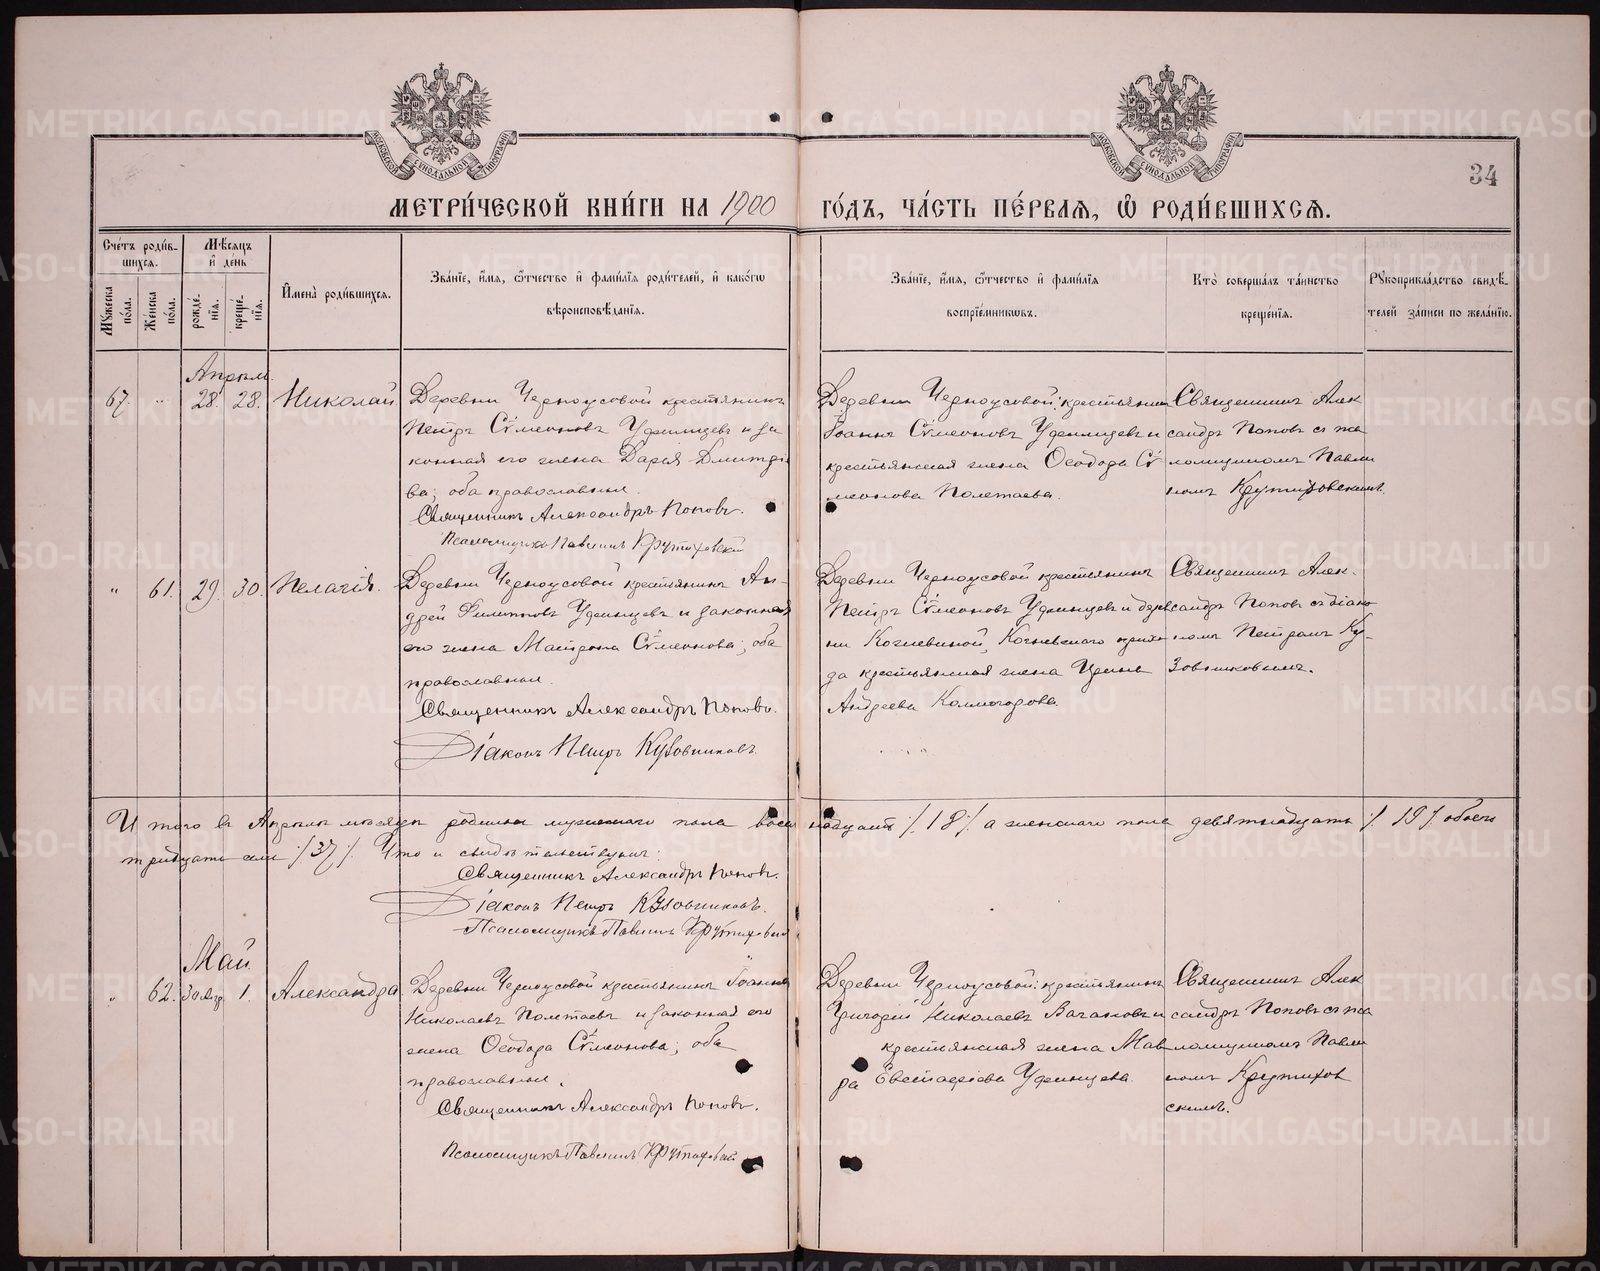 34
МЕТРИЧЕСКОЙ КНИГИ НА 1900 ГОДЪ, ЧАСТЬ ПЕРВАЯ, Ѿ РОДИВШИХСЯ.
Счетъ родив-
шихся.
Мѣсяцъ
и день
Мужеска
пола.
Женска
пола.
рожде-
нія.
креще-
нія.
Имена родившихся.
Званіе, имя, отчество и фамилія родителей, и какогѡ
вѣроисповѣданія.
Званіе, имя, отчество и фамилія
воспріемниковъ.
Кто совершалъ таинство
крещенія.
Рукоприкладство свидѣ-
телей записи по желанію.
Апрѣль
67. " 28. 28. Николай.
Деревни Черноусовой крестьянинъ
Петръ Сѵмеоновъ Уфимцевъ и за
конная его жена Дарья Дмитріе
ва; оба православные.
Священникъ Александръ Поповъ.
Псаломщикъ Павлинъ Крутиховскій
Деревни Черноусовой: крестьянинъ
Іоаннъ Сѵмеоновъ Уфимцевъ и
крестьянская жена Ѳеодора Сѵ
меонова Полетаева.
Священникъ Алек
сандръ Поповъ съ пса
ломщикомъ Павли
номъ Крутиховскимъ.
" 61. 29. 30. Пелагія.
Деревни Черноусовой крестьянинъ Ан-
дрей Филипповъ Уфимцевъ и законная
его жена Матрона Сѵмеонова; оба
православные.
Священникъ Александръ Поповъ.
Діаконъ Петръ Кузовниковъ.
Деревни Черноусовой крестьянинъ
Петръ Сѵмеоновъ Уфимцевъ и дерев
ни Когневиной, прихо
да крестьянская жена Ирина
Андреева Колмогорова
Священникъ Алек-
сандръ Поповъ съ діако
номъ Петромъ Ку-
зовниковымъ.
Итого въ Апрѣлѣ мѣсяцѣ родилось мужескаго пола восемнадцать /18/ а женскаго пола девятнадцать /19/ обоего
тридцать семь /37/. Что и свидѣтельствуемъ:
Священникъ Александръ Поповъ.
Діаконъ Петръ Кузовниковъ.
Псаломщикъ Павлинъ Крутиховскій
Май
" 62. 30 Апр. 1. Александра
Деревни Черноусовой крестьянинъ Іоаннъ
Николаевъ Полетаевъ и законная его
жена Ѳеодора Сѵмеонова; оба
православные.
Священникъ Александръ Поповъ.
Псаломщикъ Павлинъ Крутиховскій
Деревни Черноусовой: крестьянинъ
Григорій Николаевъ Ваганов и
крестьянская жена Мав
ра Евстафіева Уфимцева
Священникъ Алек
сандръ Поповъ съ пса
ломщикомъ Павли
номъ Крутихов
скимъ.
METRIKI.GASO-URAL.RU